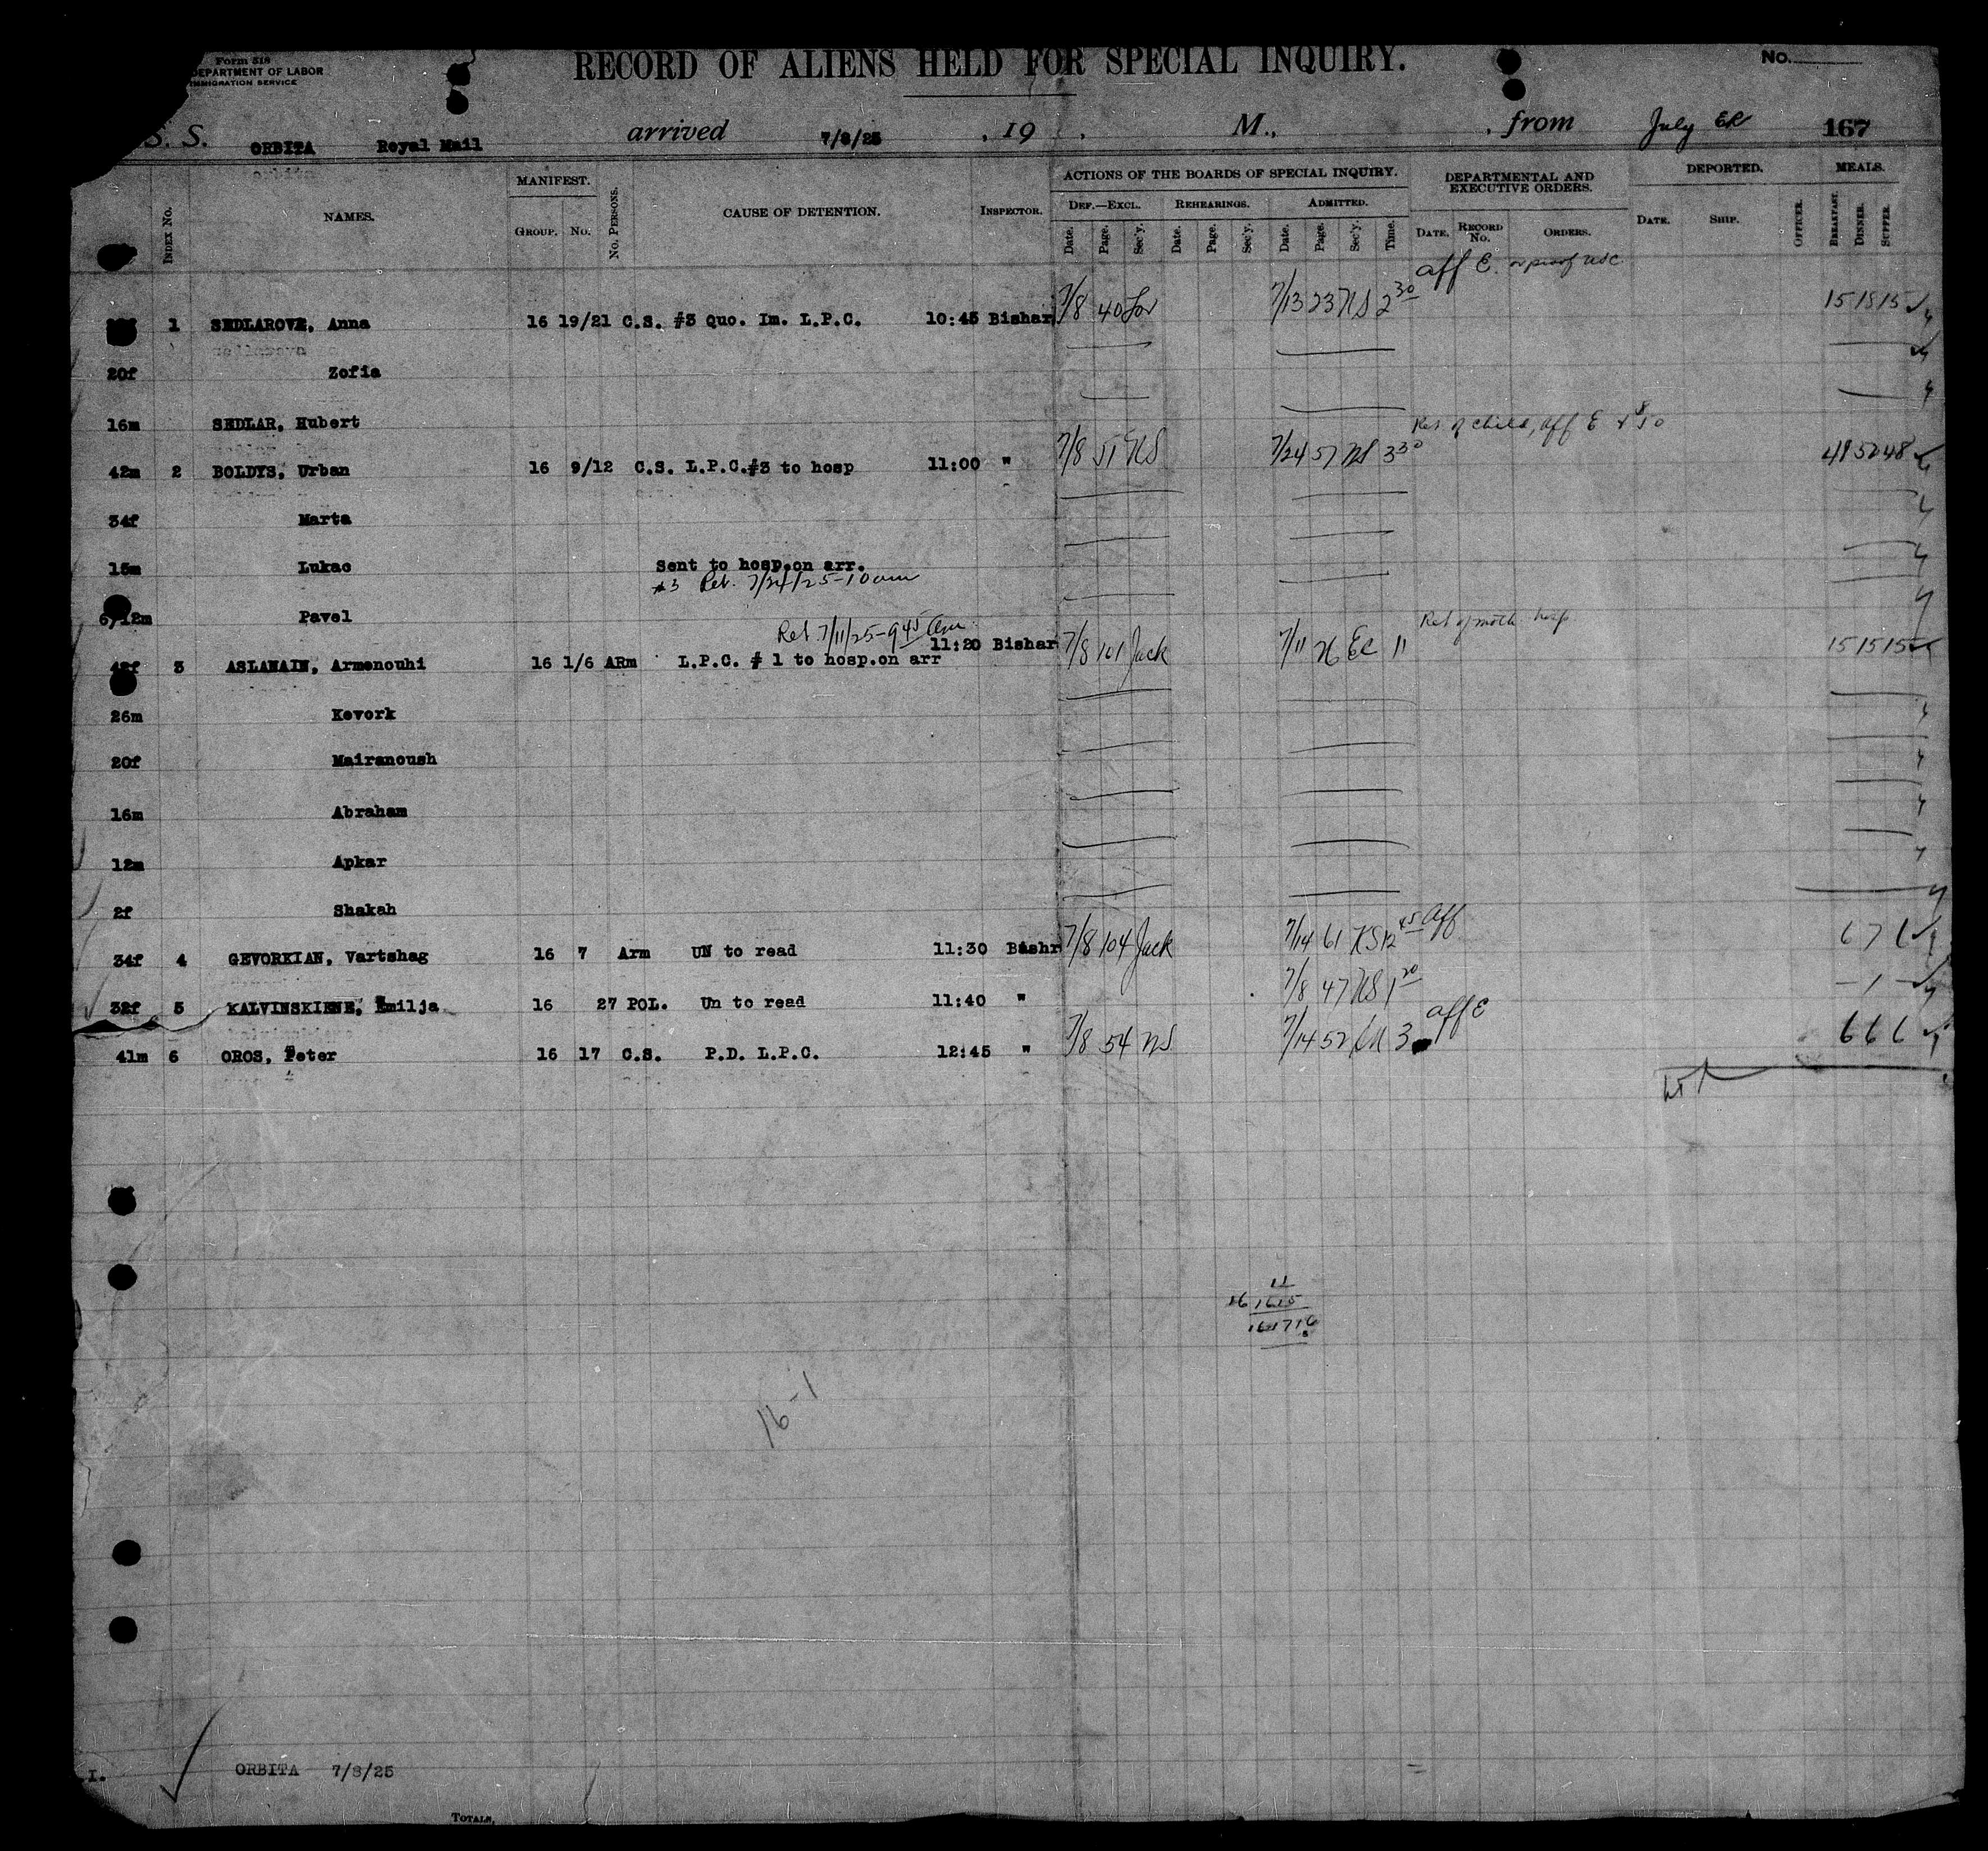 Form 518
DEPARTMENT OF LABOR
IMMIGRATION SERVICE
RECORD OF ALIENS HELD FOR SPECIAL INQUIRY.
No.
S. S. ORBITA Royal Mail arrived 7/8/25 , 19 , M., , from July ER 167
INDEX No. NAMES. MANIFEST. GROUP. No. No. PERSONS. CAUSE OF DETENTION. INSPECTOR. ACTIONS OF THE BOARDS OF SPECIAL INQUIRY. DEPARTMENTAL AND EXECUTIVE ORDERS. DEPORTED. MEALS.
DEF.—EXCL. REHEARINGS. ADMITTED.
Date. Page. Sec'y. Date. Page. Sec'y. Date. Page. Sec'y. Time. DATE. RECORD No. ORDERS. DATE. SHIP. OFFICER. BREAKFAST. DINNER. SUPPER.
aff E. or proof USC
1 SEDLAROVE, Anna 16 19/21 C.S. #3 Quo. Im. L.P.C. 10:45 Bishar 7/8 40 Lov 7/13 23 NS 2 30 15 15 15
20f Zofia
16m SEDLAR, Hubert
Ret of child, aff E
42m 2 BOLDYS, Urban 16 9/12 C.S. L.P.C.#3 to hosp 11:00 " 7/8 51 NS 7/24 57 NS 3 30 48 52 48
34f Marta
15m Lukac Sent to hosp.on arr.
#3 Ret. 7/24/25-10am
6/12m Pavel
Ret 7/11/25-9 45 am
Ret of moth hosp
42f 3 ASLANAIN, Armenouhi 16 1/6 ARm L.P.C. # 1 to hosp.on arr 11:20 Bishar 7/8 101 Jack 7/11 26 EC 11 15 15 15
26m Kevork
20f Mairanoush
16m Abraham
12m Apkar
2f Shakah
34f 4 GEVORKIAN, Vartshag 16 7 Arm UN to read 11:30 Bishr 7/8 104 Jack 7/14 61 NS 12 45 aff 6 7 6
32f 5 KALVINSKIENE, Emilja 16 27 POL. Un to read 11:40 " 7/8 47 NS 1 20 – 1 –
41m 6 OROS, Peter 16 17 C.S. P.D. L.P.C. 12:45 " 7/8 54 NS 7/14 52 3 aff E 6 6 6
11
16 16 15
16 17 16
16-1
I.
ORBITA 7/8/25
TOTALS,